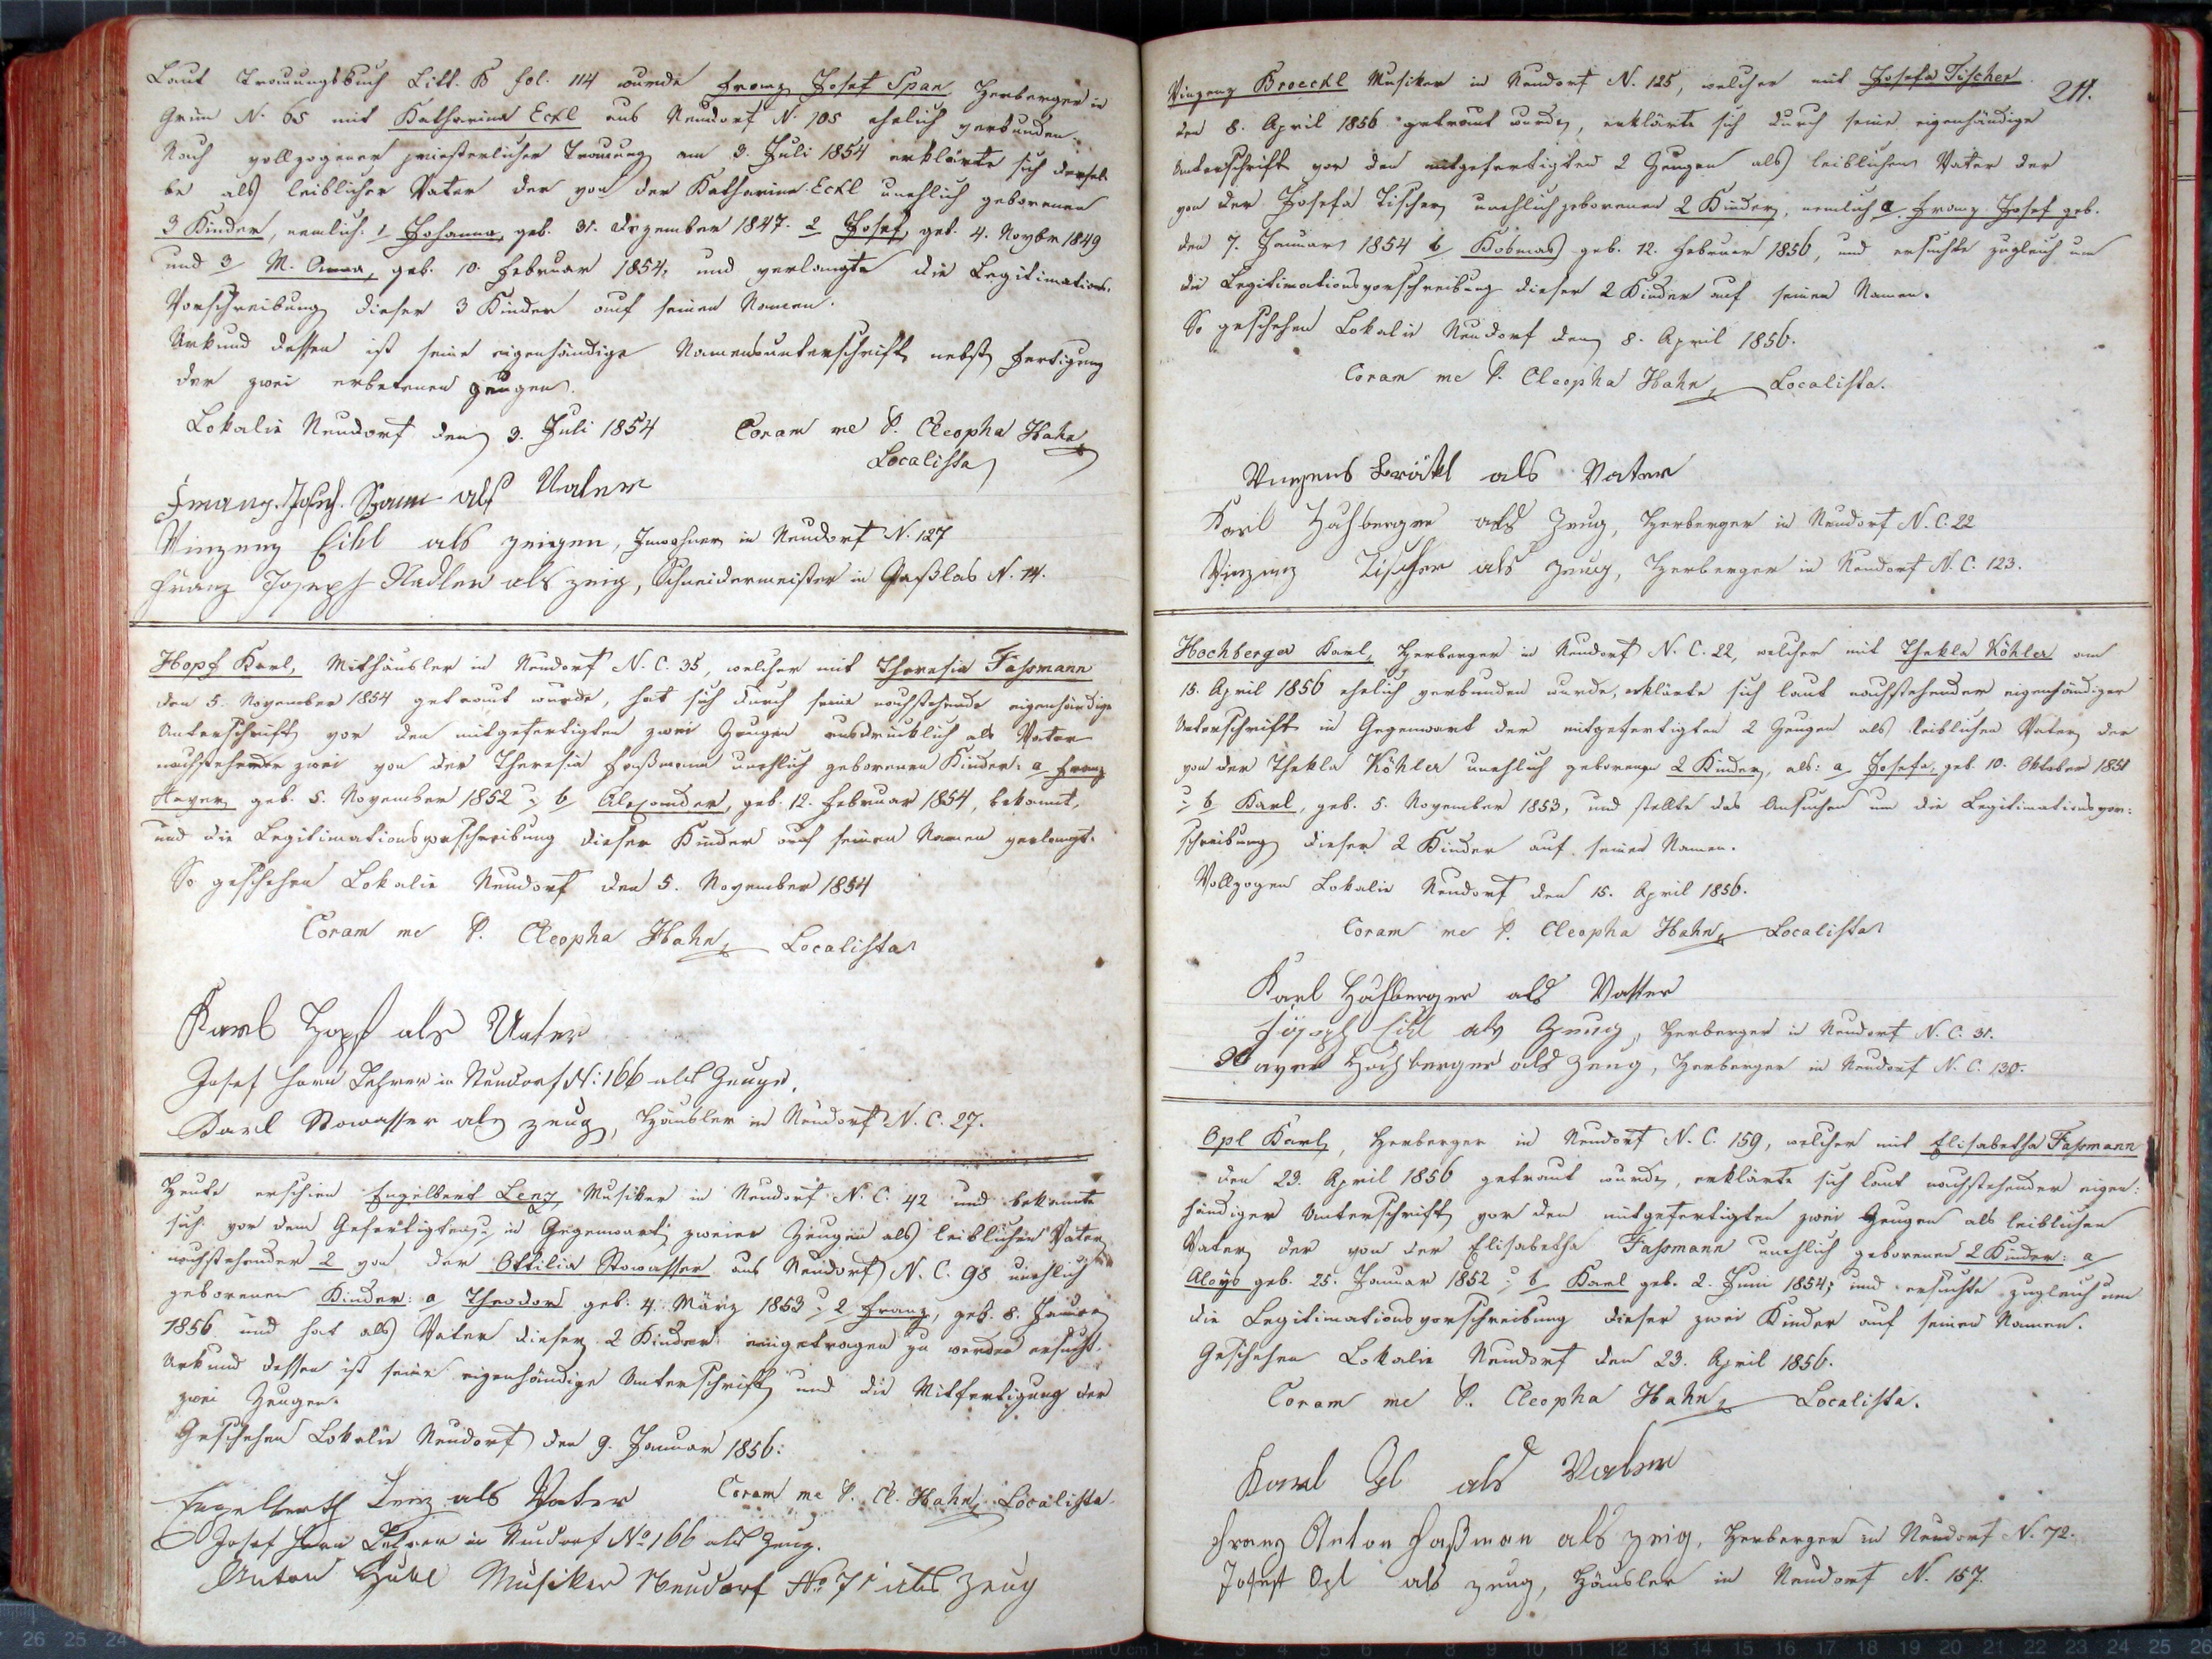 Laut Trauungsbuch Litt. B fol. 114 wurde Franz Josef Span, Herberger in
Grün N. 65 mit Katharina Eckl aus Neudorf N. 105 ehelich verbunden.
Nach vollzogener priesterlicher Trauung am 3. Juli 1854 erklärte sich dersel-
be als leiblicher Vater der von der Katharina Eckl unehlich geborenen
3 Kinder, nemlich: 1 Johanna, geb. 31. Dezember 1847. 2 Josef, geb. 4. Novbr 1849
und 3 M. Anna, geb. 10. Februar 1854, und verlangte die Legitimations-
Vorschreibung dieser 3 Kinder auf seinen Namen.
Urkund dessen ist seine eigenhändige Namensunterschrift nebst Fertigung
der zwei erbetenen Zeugen.
Lokalie Neudorf den 3. Juli 1854 Coram me P. Cleopha Hahn
Localista
Franz Josef Spann als Vater
Vinzenz Eikl als zeigen, Inwohner in Neudorf N. 127
Franz Joseph Nadler als zeig, Schneidermeister in Gaßlas N. 14.
Hopf Karl, Mithäusler in Neudorf N. C. 35, welcher mit Theresia Faßmann
den 5. November 1854 getraut wurde, hat sich durch seine nachstehende eigenhändige
Unterschrift vor den mitgefertigten zwei Zeugen ausdrücklich als Vater
nachstehender zwei von der Theresia Faßmann unehlich geborenen Kinder: a Franz
Xaver geb. 5. November 1852 & b Alexander, geb. 12. Februar 1854, bekannt,
und die Legitimationsvorschreibung dieser Kinder auf seinen Namen verlangt.
So geschehen Lokalie Neudorf den 5. November 1854
Coram me P. Cleopha Hahn Localista
Karl Hopf als Vater
Josef Horn Lehrer in Neudorf N: 166 als Zeuge.
Karl Stowasser als zeug, Häusler in Neudorf N. C. 27.
Heute erschien Engelbert Lenz Musiker in Neudorf N. C. 42 und bekannte
sich vor dem Gefertigten & in Gegenwart zweier Zeugen als leiblichen Vater
nachstehender 2 von der Ottilia Stowasser aus Neudorf N. C. 98 unehlich
geborenen Kinder: a Theodor geb. 4. März 1853 & 2 Franz, geb. 8. Januar
1856 und hat als Vater dieser 2 Kinder eingetragen zu werden ersucht.
Urkund dessen ist seine eigenhändige Unterschrift und die Mitfertigung der
zwei Zeugen.
Geschehen Lokalie Neudorf den 9. Januar 1856.
Engelberth Lenz als Vater Coram me P. Cl. Hahn Localista.
Josef Horn Lehrer in Neudorf No 166 als Zeug.
Anton Musiker Neudorf No 71 als Zeug
211.
Vinzenz Broeckl Musiker in Neudorf N. 125, welcher mit Josefa Tischer
den 8. April 1856 getraut wurde, erklärte sich durch seine eigenhändige
Unterschrift vor den mitgefertigten 2 Zeugen als leiblichen Vater der
von der Josefa Tischer unehlich geborenen 2 Kinder, nemlich a. Franz Josef geb.
den 7. Januar 1854 b Kosmas geb. 12. Februar 1856, und ersuchte zugleich um
die Legitimationsvorschreibung dieser 2 Kinder auf seinen Namen.
So geschehen Lokalie Neudorf den 8. April 1856.
Coram me P. Cleopha Hahn Localista.
Vinzens Brökl als Vater
Karl Hochberger als Zeug, Herberger in Neudorf N. C. 22
Vinzenz Tischer als Zeug, Herberger in Neudorf N. C. 123.
Hochberger Karl, Herberger in Neudorf N. C. 22, welcher mit Thekla Köhler am
15. April 1856 ehelich verbunden wurde, erklärte sich laut nachstehender eigenhändiger
Unterschrift in Gegenwart der mitgefertigten 2 Zeugen als leiblichen Vater der
von der Thekla Köhler unehlich geborenen 2 Kinder, als: a Josefa, geb. 10. Oktober 1851
& b Karl, geb. 5. November 1853, und stellte das Ansuchen um die Legitimationsvor:
schreibung dieser 2 Kinder auf seinen Namen.
Vollzogen Lokalie Neudorf den 15. April 1856.
Coram me P. Cleopha Hahn Localista
Karl Hochberger als Vatter
Joseph Eikl als Zeug, Herberger in Neudorf N. C. 31.
Xaver Hochberger als Zeug, Herberger in Neudorf N. C. 130.
Opl Karl, Herberger in Neudorf N. C. 159, welcher mit Elisabetha Faßmann
den 23. April 1856 getraut wurde, erklärte sich laut nachstehender eigen:
händiger Unterschrift vor den mitgefertigten zwei Zeugen als leiblichen
Vater der von der Elisabetha Faßmann unehlich geborenen 2 Kinder: a
Aloys geb. 25. Januar 1852 & b Karl geb. 2. Juni 1854; und ersuchte zugleich um
die Legitimationsvorschreibung dieser zwei Kinder auf seinen Namen.
Geschehen Lokalie Neudorf den 23. April 1856.
Coram me P. Cleopha Hahn Localista.
Karl Opl als Vater
Franz Anton Faßman als zeig, Herberger in Neudorf N. 72.
Josef Opl als zeug, Häusler in Neudorf N. 157.